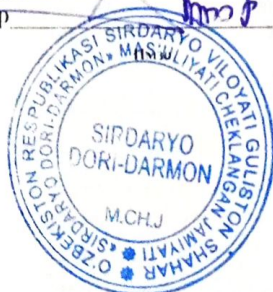 O'ZBEKISTON RESPUBLIKASI SIRDARYO VILOYATI GULISTON SHAHAR
«SIRDARYO DORI-DARMON» MAS'ULIYATI CHEKLANGAN JAMIYATI
SIRDARYO
DORI-DARMON
M.CH.J